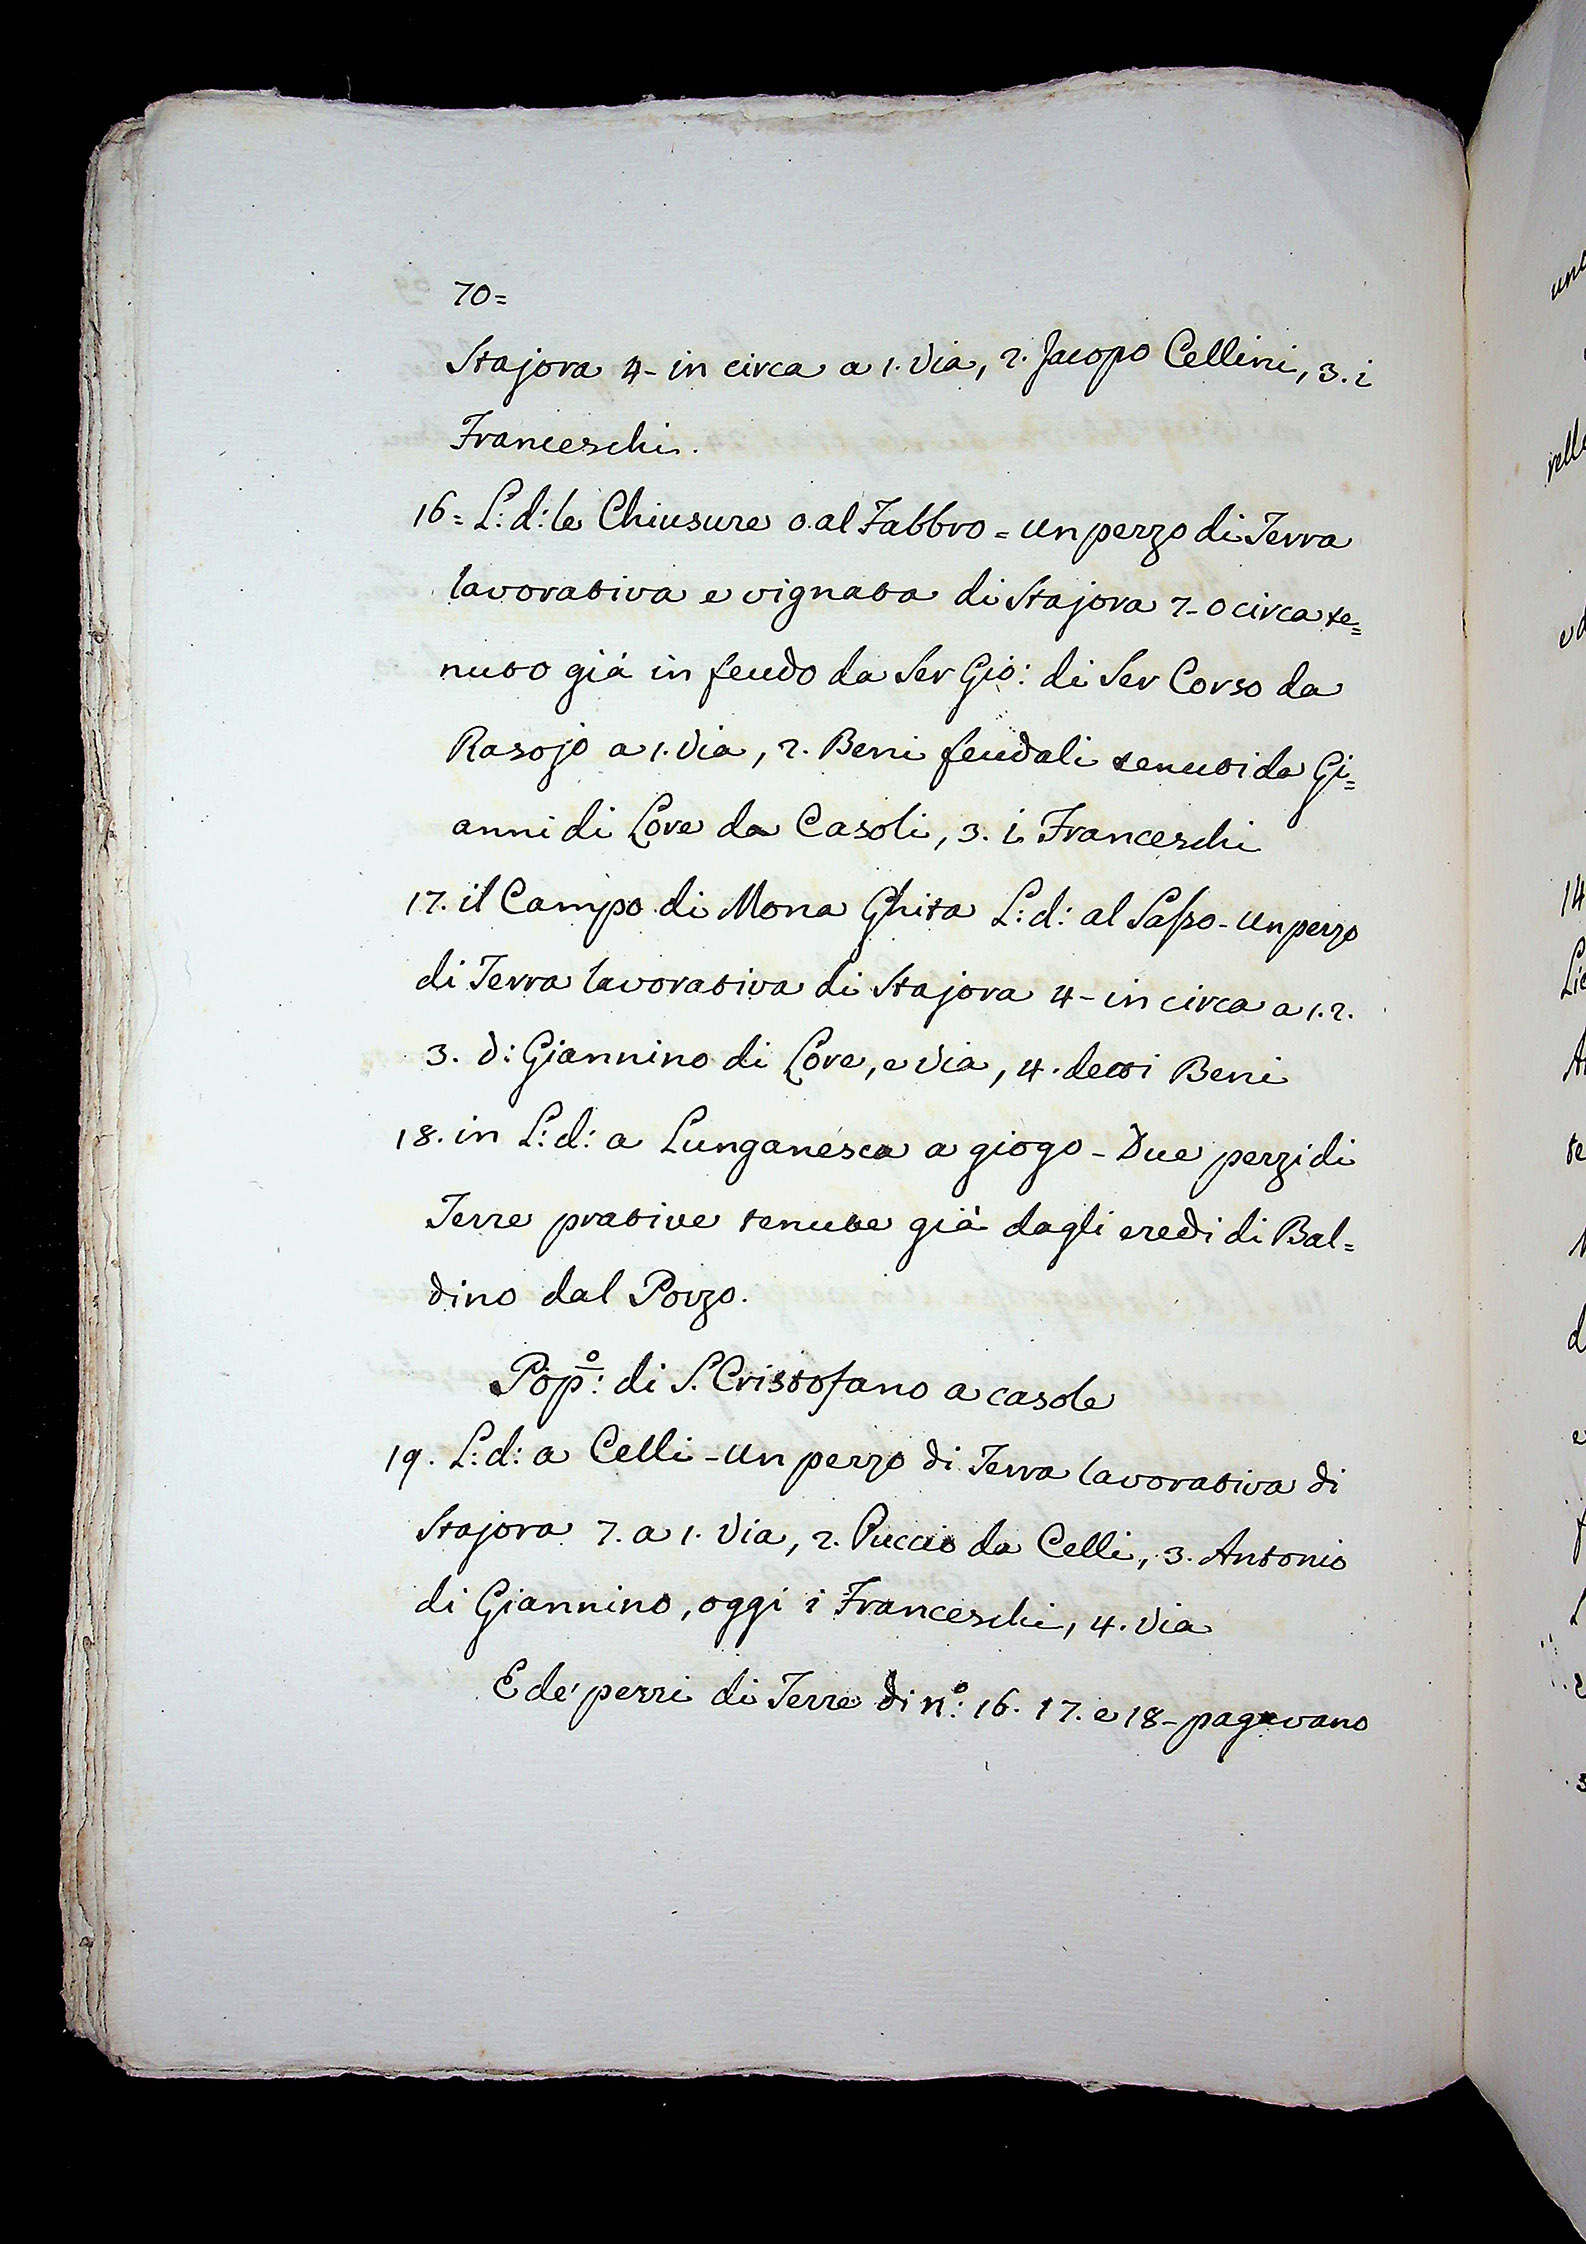 70=
Stajora 4- in circa a 1. Via, 2. Jacopo Cellini, 3. i
Franceschi.
16= L: d: le Chiusure o al Fabbro = un pezzo di Terra
lavorativa e vignata di Stajora 7- o circa te=
nuto già in feudo da Ser Gio: di Ser Corso da
Rasojo a 1. Via, 2. Beni feudali tenuti da Gi=
anni di Lore da Casoli, 3. i Franceschi
17. il Campo di Mona Ghita L: d: al Sasso - un pezzo
di Terra lavorativa di Stajora 4- in circa a 1. 2.
3. d: Giannino di Lore, e Via, 4. detti Beni
18. in L: d: a Lunganesca a giogo - Due pezzi di
Terre prative tenute già dagli eredi di Bal=
dino dal Pozzo.
Pop:º di S. Cristofano a casole
19. L: d: a Celli - un pezzo di Terra lavorativa di
Stajora 7. a 1. Via, 2. Puccio da Celli, 3. Antonio
di Giannino, oggi i Franceschi, 4. Via
E de' pezzi di Terre di n:º 16. 17. e 18- pagavano